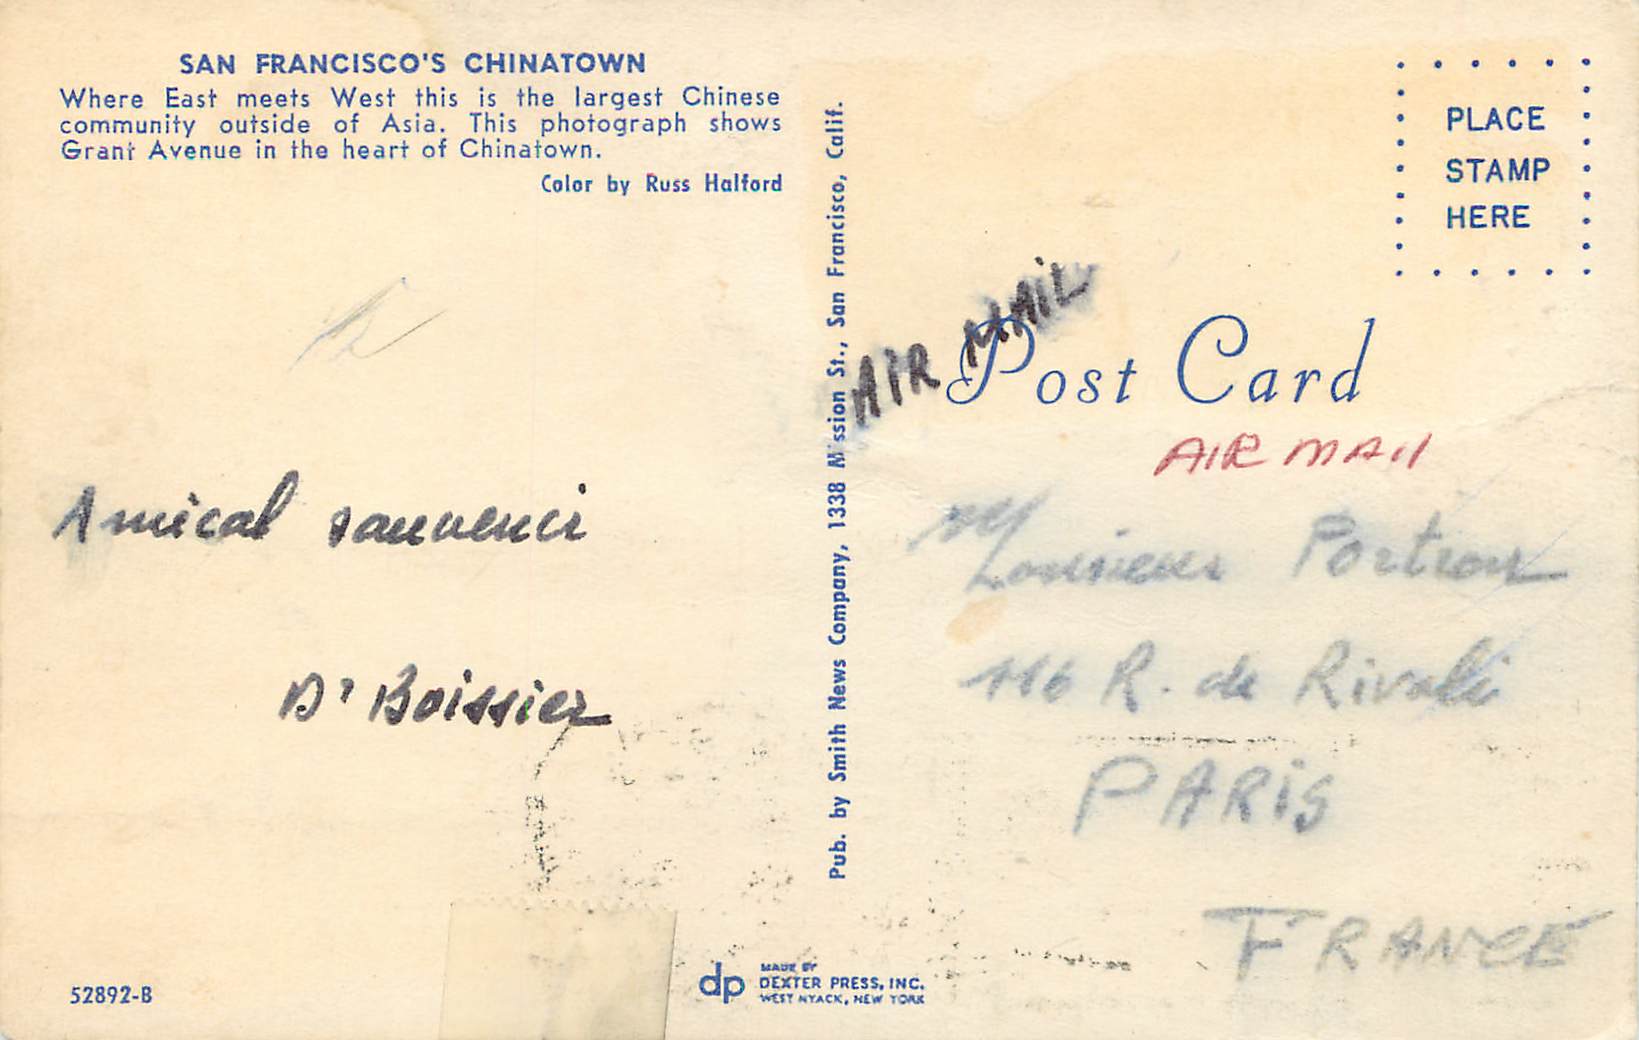 SAN FRANCISCO'S CHINATOWN
Where East meets West this is the largest Chinese
community outside of Asia. This photograph shows
Grant Avenue in the heart of Chinatown.
Color by Russ Halford
Amical souvenir
Dr Boissier
52892-B
Pub. by Smith News Company, 1338 Mission St., San Francisco, Calif.
dp
MADE BY
DEXTER PRESS, INC.
WEST NYACK, NEW YORK
PLACE
STAMP
HERE
AIR MAIL
Post Card
AIR MAIL
Monsieur Portron
116 R. de Rivoli
PARIS
FRANCE